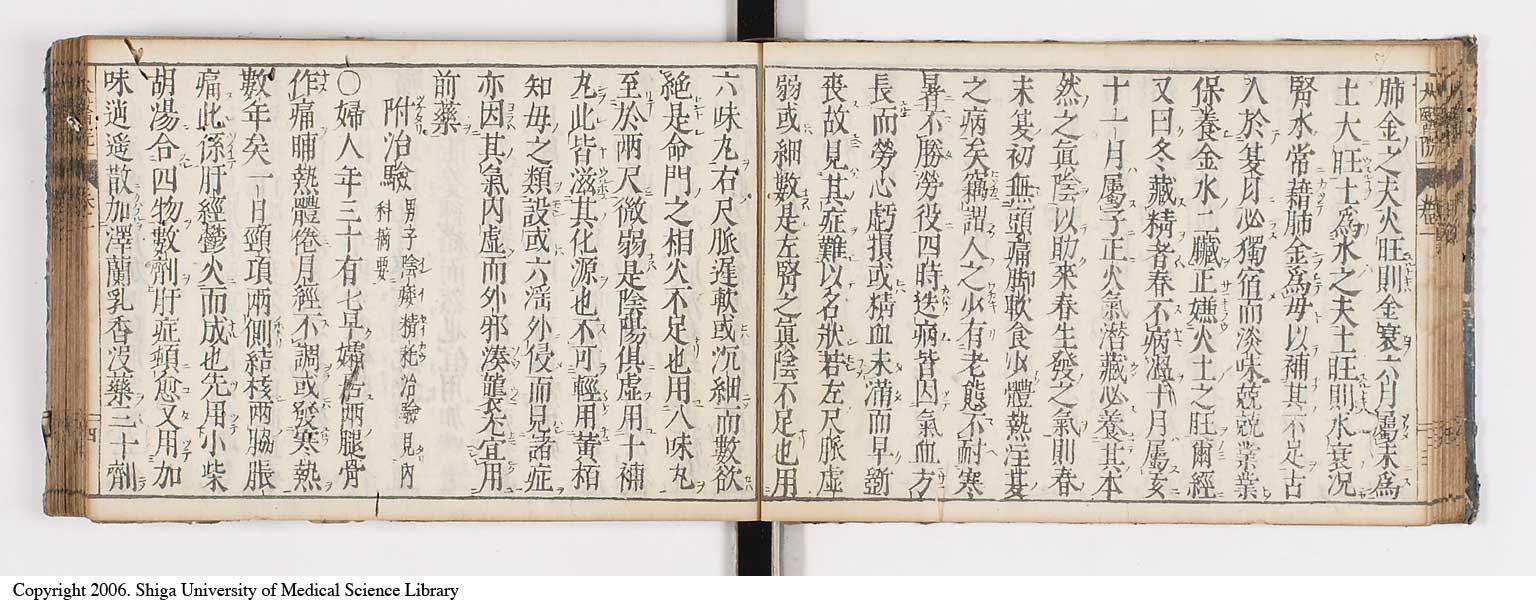 肺金之夫火旺則金衰六月屬未爲
土大旺土爲水之夫土旺則水衰況
腎水常藉肺金爲母以補其不足古
人於夏月必獨宿而淡味兢兢業業
保養金水二臟正嫌火土之旺爾經
又曰冬藏精者春不病溫十月屬亥
十一月屬子正火氣潛藏必養其本
然之眞陰以助來春生發之氣則春
末夏初無頭痛脚軟食少體熱注夏
之病矣竊謂人之少有老態不耐寒
暑不勝勞役四時迭病皆因氣血方
長而勞心虧損或精血未滿而早斵
喪故見其症難以名狀若左尺脈虛
弱或細數是左腎之眞陰不足也用
六味丸右尺脈遲軟或沉細而數欲
絕是命門之相火不足也用八味丸
至於兩尺微弱是陰陽俱虛用十補
丸此皆滋其化源也不可輕用黃栢
知母之類設或六淫外侵而見諸症
亦因其氣內虛而外邪湊襲尤宜用
前藥
附治驗 男子陰痿精耗治驗見內科摘要
○婦人年三十有七早孀居兩腿骨
作痛晡熱體倦月經不調或發寒熱
數年矣一日頸項兩側結核兩脇脹
痛此係肝經鬱火而成也先用小柴
胡湯合四物數劑肝症頓愈又用加
味逍遙散加澤蘭乳香沒藥三十劑
四
Copyright 2006. Shiga University of Medical Science Library